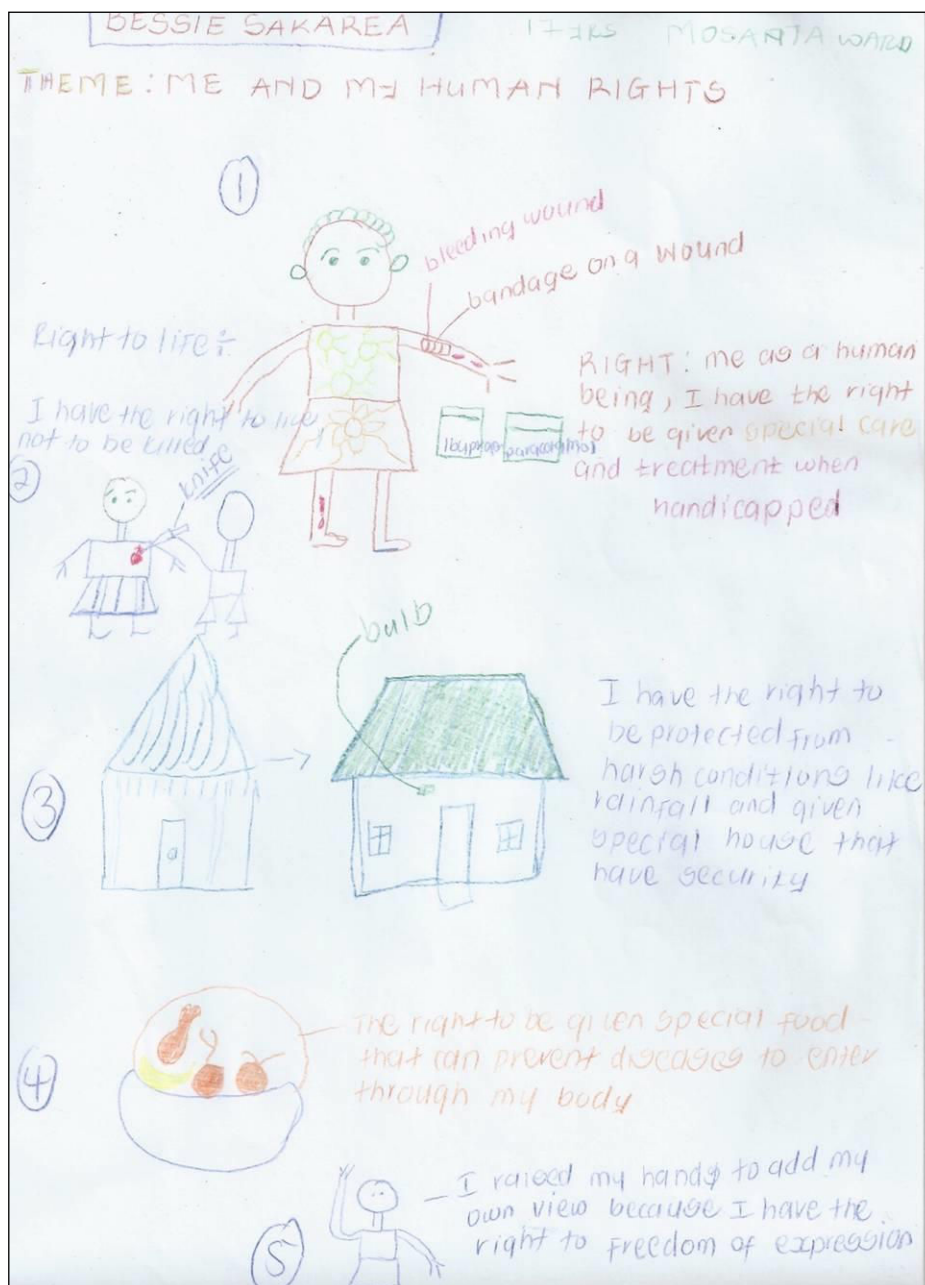 BESSIE SAKAREA
17 YRS MOSANTA WARD
THEME: ME AND MY HUMAN RIGHTS
1
bleeding wound
bandage on a wound
Right to life:
I have the right to live
not to be killed
2
knife
RIGHT: me as a human
being, I have the right
to be given special care
and treatment when
handicapped
bulb
3
I have the right to
be protected from
harsh conditions like
rainfall and given
special house that
have security
4
The right to be given special food
that can prevent diseases to enter
through my body
5
I raised my hands to add my
own view because I have the
right to Freedom of expression